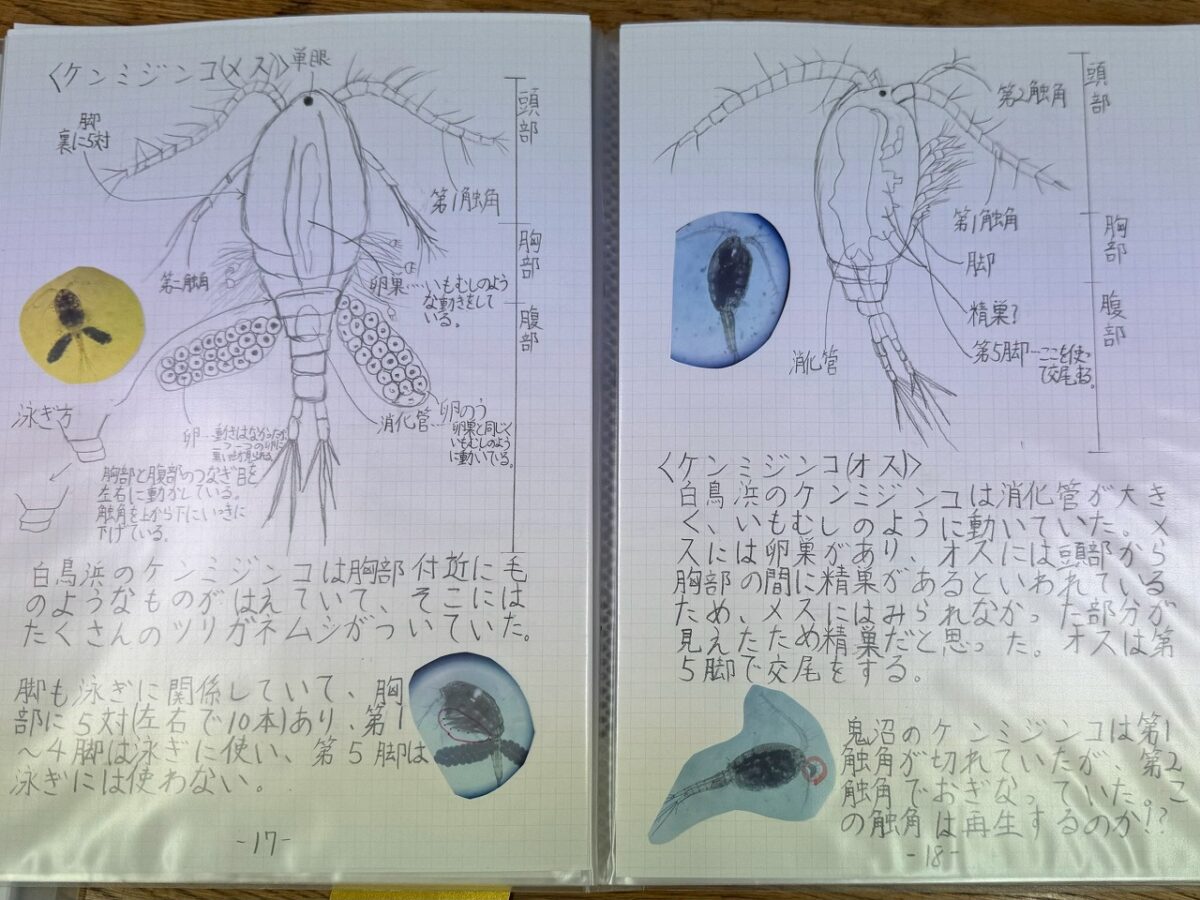 〈ケンミジンコ(メス)〉
単眼
脚
裏に5対
頭部
第1触角
胸部
第二触角
卵巣…いもむしのよう
な動きをして
いる。
腹部
泳ぎ方
卵…動きはなかったが
一つ一つの卵に
消化管…卵巣と同じく
いもむしのよう
に動いている。
卵のう
胸部と腹部のつなぎ目を
左右に動かしている。
触角を上から下にいっきに
下げている。
白鳥浜のケンミジンコは胸部付近に毛
のようなものがはえていて、そこには
たくさんのツリガネムシがついていた。
脚も泳ぎに関係していて、胸
部に5対(左右で10本)あり、第1
〜4脚は泳ぎに使い、第5脚は
泳ぎには使わない。
-17-
頭部
第2触角
第1触角
胸部
脚
腹部
精巣?
第5脚…ここを使っ
て交尾する。
消化管
〈ケンミジンコ(オス)〉
白鳥浜のケンミジンコは消化管が大き
く、いもむしのように動いていた。メ
スには卵巣があり、オスには頭部から
胸部の間に精巣があるといわれている
ため、メスにはみられなかった部分が
見えたため精巣だと思った。オスは第
5脚で交尾をする。
鬼沼のケンミジンコは第1
触角が切れていたが、第2
触角でおぎなっていた。こ
の触角は再生するのか!?
-18-